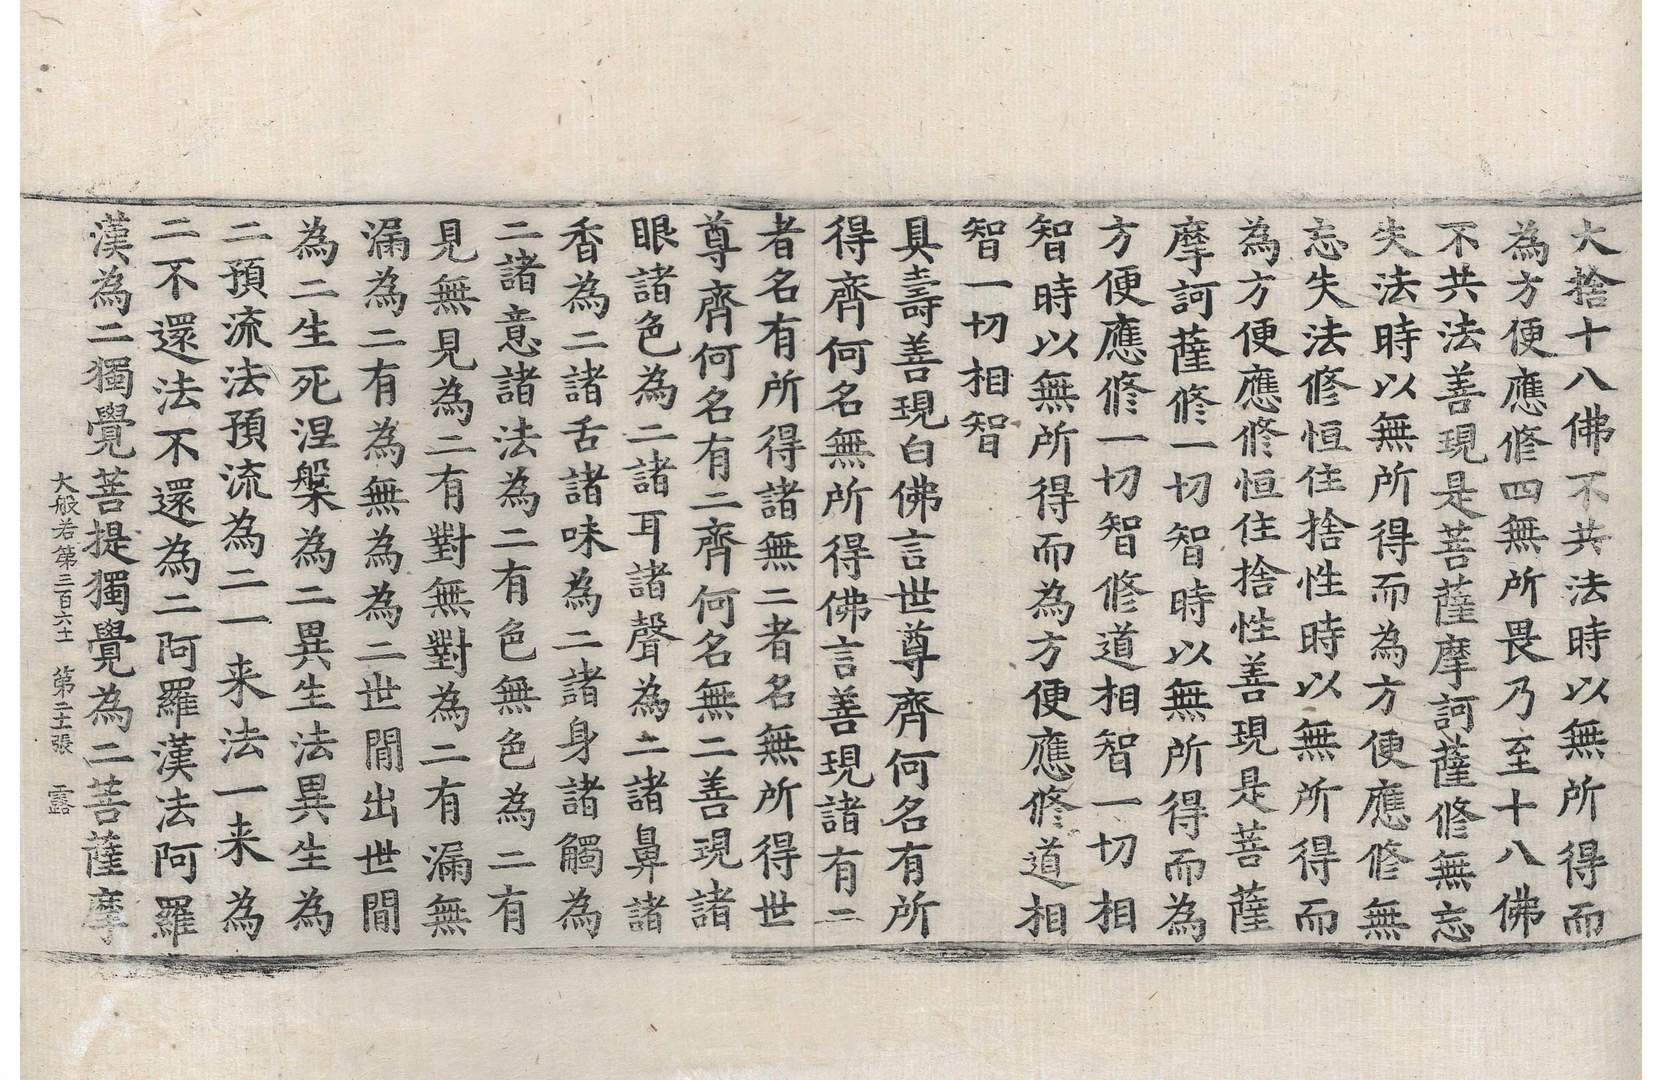 大捨十八佛不共法時以無所得而
為方便應修四無所畏乃至十八佛
不共法善現是菩薩摩訶薩修無忘
失法時以無所得而為方便應修無
忘失法修恒住捨性時以無所得而
為方便應修恒住捨性善現是菩薩
摩訶薩修一切智時以無所得而為
方便應修一切智修道相智一切相
智時以無所得而為方便應修道相
智一切相智
具壽善現白佛言世尊齊何名有所
得齊何名無所得佛言善現諸有二
者名有所得諸無二者名無所得世
尊齊何名有二齊何名無二善現諸
眼諸色為二諸耳諸聲為二諸鼻諸
香為二諸舌諸味為二諸身諸觸為
二諸意諸法為二有色無色為二有
見無見為二有對無對為二有漏無
漏為二有為無為為二世間出世間
為二生死涅槃為二異生法異生為
二預流法預流為二一来法一来為
二不還法不還為二阿羅漢法阿羅
漢為二獨覺菩提獨覺為二菩薩摩
大般若第三百六十　第二十張　露